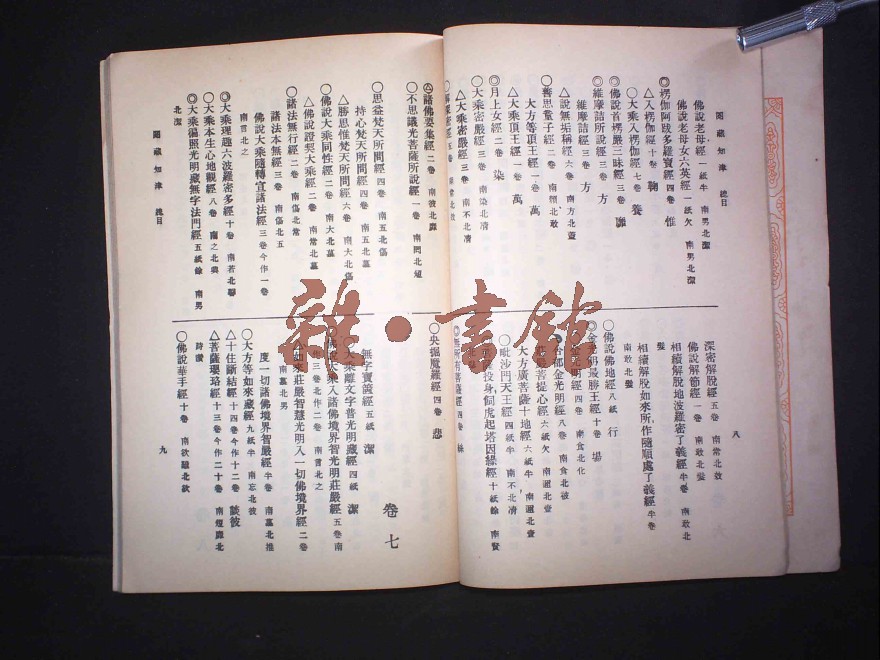 閱藏知津 總目
佛說老母經 一紙半 南男北潔
佛說老母女六英經 一紙欠 南男北潔
◎楞伽阿跋多羅寶經 四卷 惟
△入楞伽經 十卷 鞠
○大乘入楞伽經 七卷 養
○佛說首楞嚴三昧經 三卷
◎維摩詰所說經 三卷 方
維摩詰經 三卷 方
△說無垢稱經 六卷 南方北蓋
○善思童子經 二卷 北敢
大方等頂王經 一卷 萬
△大乘頂王經 一卷 萬
◎月上女經 二卷 染
○大乘密嚴經 三卷 南染北清
△大乘密嚴經 三卷 南不北清
解深密經 五卷
深密解脫經 五卷 南常北效
佛說解節經 一卷 南敢北髮
相續解脫地波羅密了義經 半卷 南敢北髮
相續解脫如來所作隨順處了義經 半卷
南敢北髮
○佛說佛地經 八紙 行
◎金光明最勝王經 十卷 場
金光明經 四卷 南食北化
合部金光明經 八卷 南食北被
菩提心經 六紙欠 南邇北壹
大方廣菩薩十地經 六紙 南邇北壹
○毗沙門天王經 四紙半 南不北清
投身飼虎起塔因緣經 十紙餘 南賢
◎無所有菩薩經 四卷 絲
○央掘魔羅經 四卷 悲
八
諸佛要集經 二卷 南彼北靡
○不思議光菩薩所說經 一卷 南罔北短
○思益梵天所問經 四卷 南五北傷
持心梵天所問經 四卷 南五北傷
△勝思惟梵天所問經 六卷 南大北傷
○佛說大乘同性經 二卷 南大北墓
△佛說證契大乘經 二卷 南常北墓
○諸法無行經 二卷 南傷北常
諸法本無經 三卷 南傷北五
佛說大乘隨轉宣諸法經 三卷今作一卷
南言北之
◎大乘理趣六波羅密多經 十卷 南若北
○大乘本生心地觀經 八卷 南之北興
◎大乘徧照光明藏無字法門經 五紙餘 南男
北潔
閱藏知津 總目
卷七
無字寶篋經 五紙 潔
○大乘離文字普光明藏經 四紙 潔
佛說大乘入諸佛境界智光明莊嚴經 五卷 南
三卷北作二卷 南言北之
如來莊嚴智慧光明入一切佛境界經 二卷
南墓北男
度一切諸佛境界智嚴經 半卷 南墓北推
○大方等如來藏經 九紙半 南忘北彼
△十住斷結經 十四卷今作十二卷 談彼
△菩薩瓔珞經 十三卷今作二十卷 南短靡北
詩讚
○佛說華手經 十卷 南欲北欲
九
雜·書館